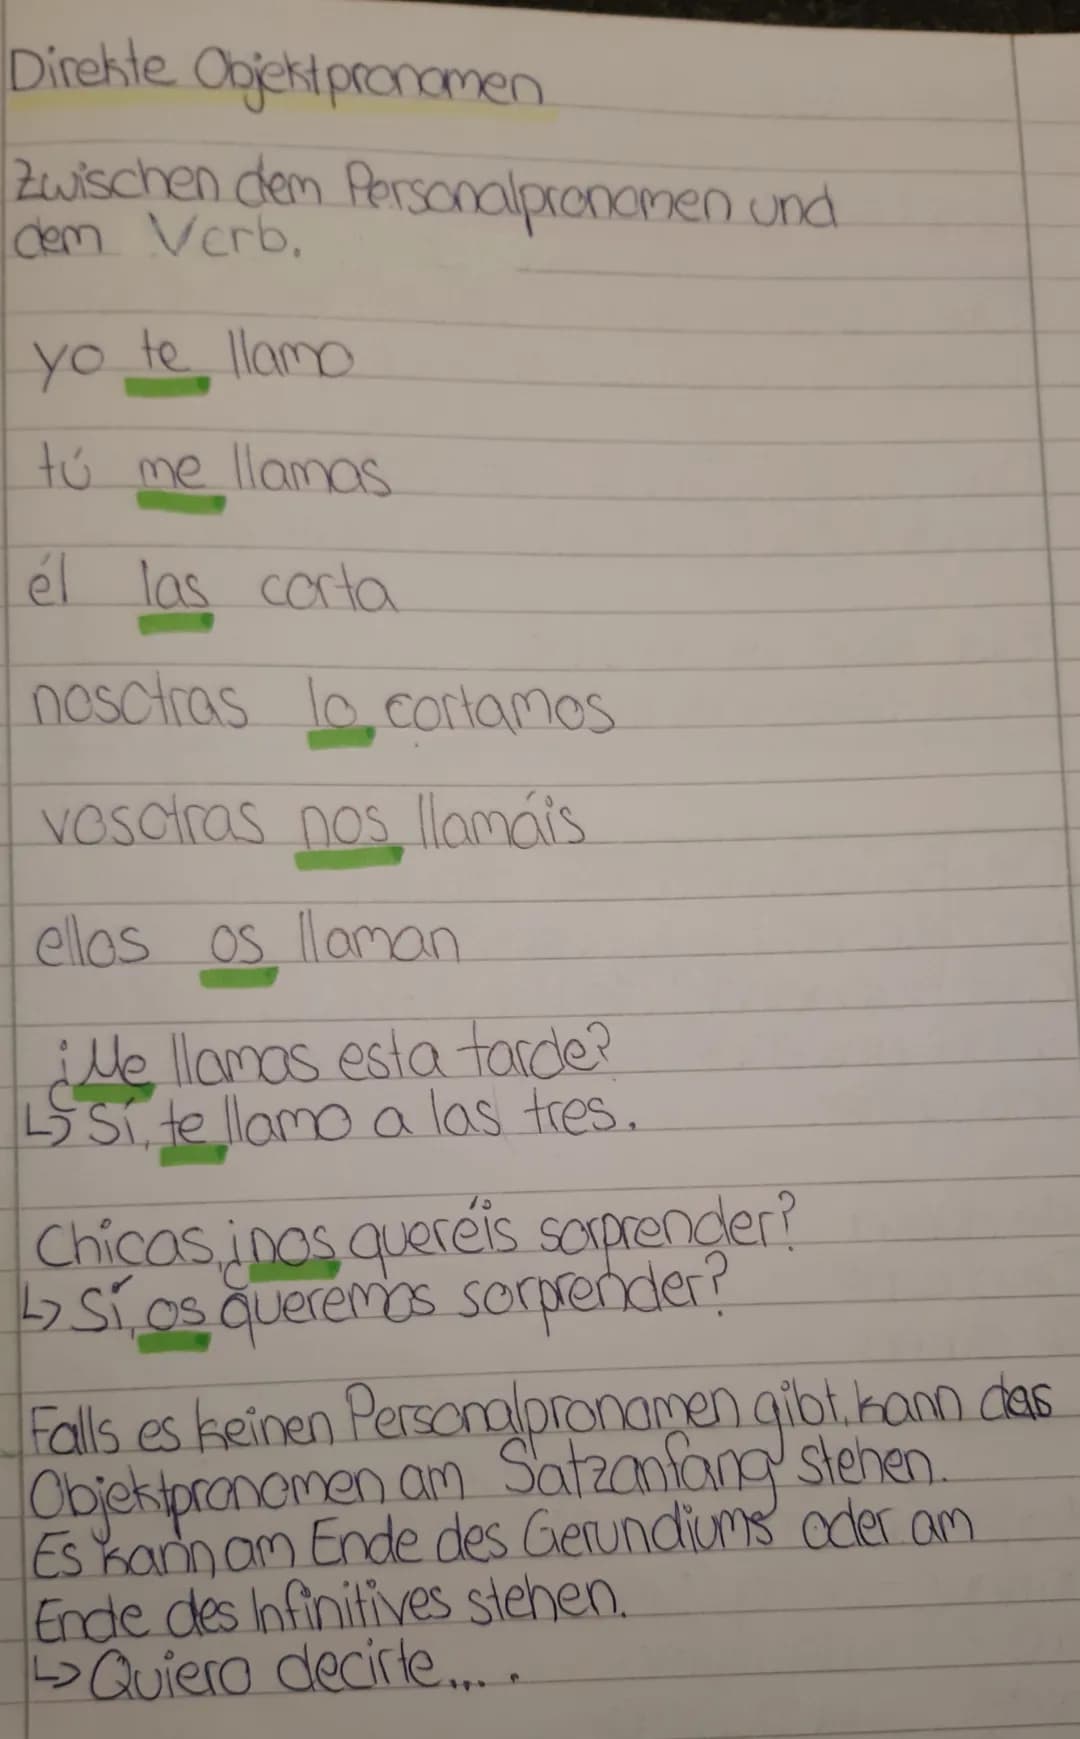 Direkte Objektpronomen
Zwischen dem Personalpronomen und
dem Verb.
yo te llamo
tú me llamas
él las corta
nosotras lo cortamos
vosotras nos llamáis
ellos os llaman
¿Me llamas esta tarde?
↳ Sí, te llamo a las tres.
Chicas, ¿nos queréis sorprender?
↳ Sí, os queremos sorprender?
Falls es keinen Personalpronomen gibt, kann das
Objektpronomen am Satzanfang stehen.
Es kann am Ende des Gerundiums oder am
Ende des Infinitives stehen.
↳ Quiero decirte... .